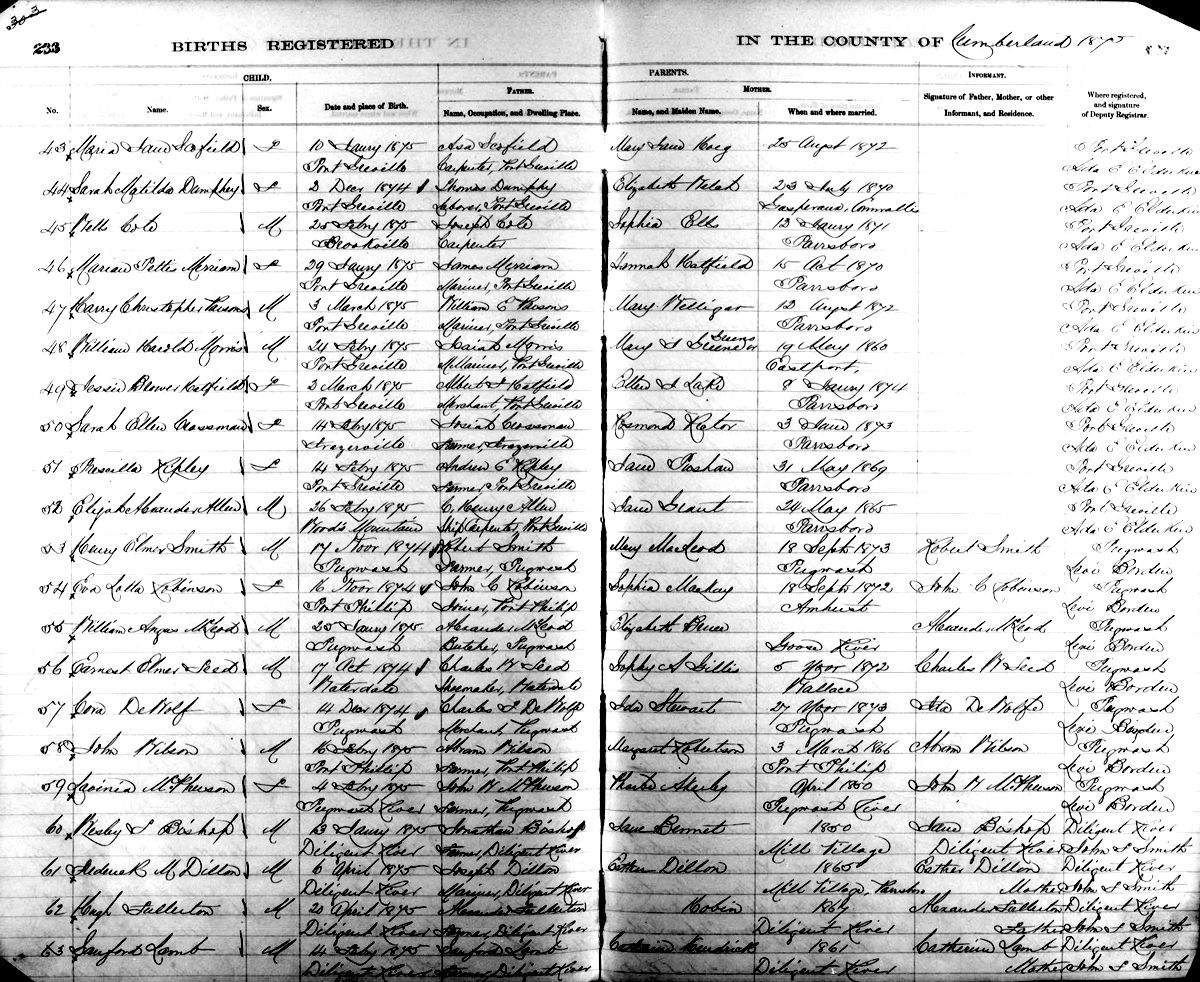 303
233
BIRTHS REGISTERED IN THE COUNTY OF Cumberland 1875
CHILD. PARENTS. INFORMANT.
FATHER. MOTHER.
No. Name. Sex. Date and place of Birth. Name, Occupation, and Dwelling Place. Name, and Maiden Name. When and where married. Signature of Father, Mother, or other Informant, and Residence. Where registered, and signature of Deputy Registrar.
43 Maria Jane Scofield F 10 Jany 1875 Asa Scofield Mary Jane Hoeg 25 August 1872 Port Greville
Port Greville Carpenter, Port Greville Ada E Elderkin
44 Sarah Matilda Dumphy F 2 Decr 1874 Thomas Dumphy Elizabeth Welsh 23 July 1870 Port Greville
Port Greville Laborer, Port Greville Gaspereau, Cornwallis Ada E Elderkin
45 Cole M 25 Feby 1875 Joseph Cole Sophia Ells 12 Jany 1871 Port Greville
Brookville Carpenter Parrsboro Ada E Elderkin
46 Marian Pettis Merriam F 29 Jany 1875 James Merriam Hannah Hatfield 15 Oct 1870 Port Greville
Port Greville Mariner, Port Greville Parrsboro Ada E Elderkin
47 Harry Christopher Parsons M 3 March 1875 William E Parsons Mary 12 August 1872 Port Greville
Port Greville Mariner, Port Greville Parrsboro Ada E Elderkin
48 William Harold Morris M 24 Feby 1875 Isaiah Morris Mary 19 May 1860 Port Greville
Port Greville Port Greville Eastport, Ada E Elderkin
49 Jessie Hatfield F 2 March 1875 Albert Hatfield Ellen Lake Jany 1874 Port Greville
Port Greville Merchant, Port Greville Parrsboro Ada E Elderkin
50 Sarah Ellen Crossman F 14 Feby 1875 Josiah Crossman Rosmond Rector 3 June 1873 Port Greville
Frazerville Farmer, Frazerville Parrsboro Ada E Elderkin
51 Priscilla Ripley F 14 Feby 1875 Andrew E Ripley Jane 31 May 1869 Port Greville
Port Greville Farmer, Port Greville Parrsboro Ada E Elderkin
52 Elijah Alexander Allen M 26 Feby 1875 C. Henry Allen Jane Grant 24 May 1865 Port Greville
Wards Mountain Ship Carpenter, Port Greville Parrsboro Ada E Elderkin
53 Henry Elmer Smith M 17 Novr 1874 Robert Smith Mary MacLeod 18 Sept 1873 Robert Smith Pugwash
Pugwash Farmer, Pugwash Pugwash Levi Borden
54 Eva Lotta Robinson F 16 Novr 1874 John C Robinson Sophia Mackay 18 Sept 1872 John C Robinson Pugwash
Port Phillip Port Philip Amherst Levi Borden
55 William Angus McLeod M 25 Jany 1875 Alexander McLeod Elizabeth Alexander McLeod Pugwash
Pugwash Butcher, Pugwash Goose River Levi Borden
56 Earnest Elmer Seed M 17 Oct 1874 Charles W Seed Sophy A Gillis 5 Novr 1872 Charles W Seed Pugwash
Waterdale Shoemaker, Waterdale Wallace Levi Borden
57 Cora DeWolf F 14 Decr 1874 Charles DeWolfe Ida Stewart 27 Novr 1873 Ida DeWolfe Pugwash
Pugwash Merchant, Pugwash Pugwash Levi Borden
58 John Wilson M 16 Feby 1875 Abram Wilson Margaret Robertson 3 March 1866 Abram Wilson Pugwash
Port Phillip Farmer, Port Philip Port Philip Levi Borden
59 Lavinia McPherson F 4 Feby 1875 John W McPherson Phoebe April 1850 John W McPherson Pugwash
Pugwash River Farmer, Pugwash Pugwash River Levi Borden
60 Wesley Bishop M 13 Jany 1875 Jonathan Bishop Jane Bennet 1850 Jane Bishop Diligent River
Diligent River Farmer, Diligent River Mill Village Diligent River John S Smith
61 Frederick M Dillon M 6 April 1875 Joseph Dillon Esther Dillon 1865 Esther Dillon Diligent River
Diligent River Mariner, Diligent River Mill Village, Parrsboro Mother John S Smith
62 Hugh Fullerton M 20 April 1875 Alexander Fullerton Robin Alexander Fullerton Diligent River
Diligent River Farmer, Diligent River Diligent River Father John S Smith
63 Sanford Lamb M 14 Feby 1875 Sanford Lamb Catherine Kendrick 1861 Catherine Lamb Diligent River
Diligent River Farmer, Diligent River Diligent River Mother John S Smith